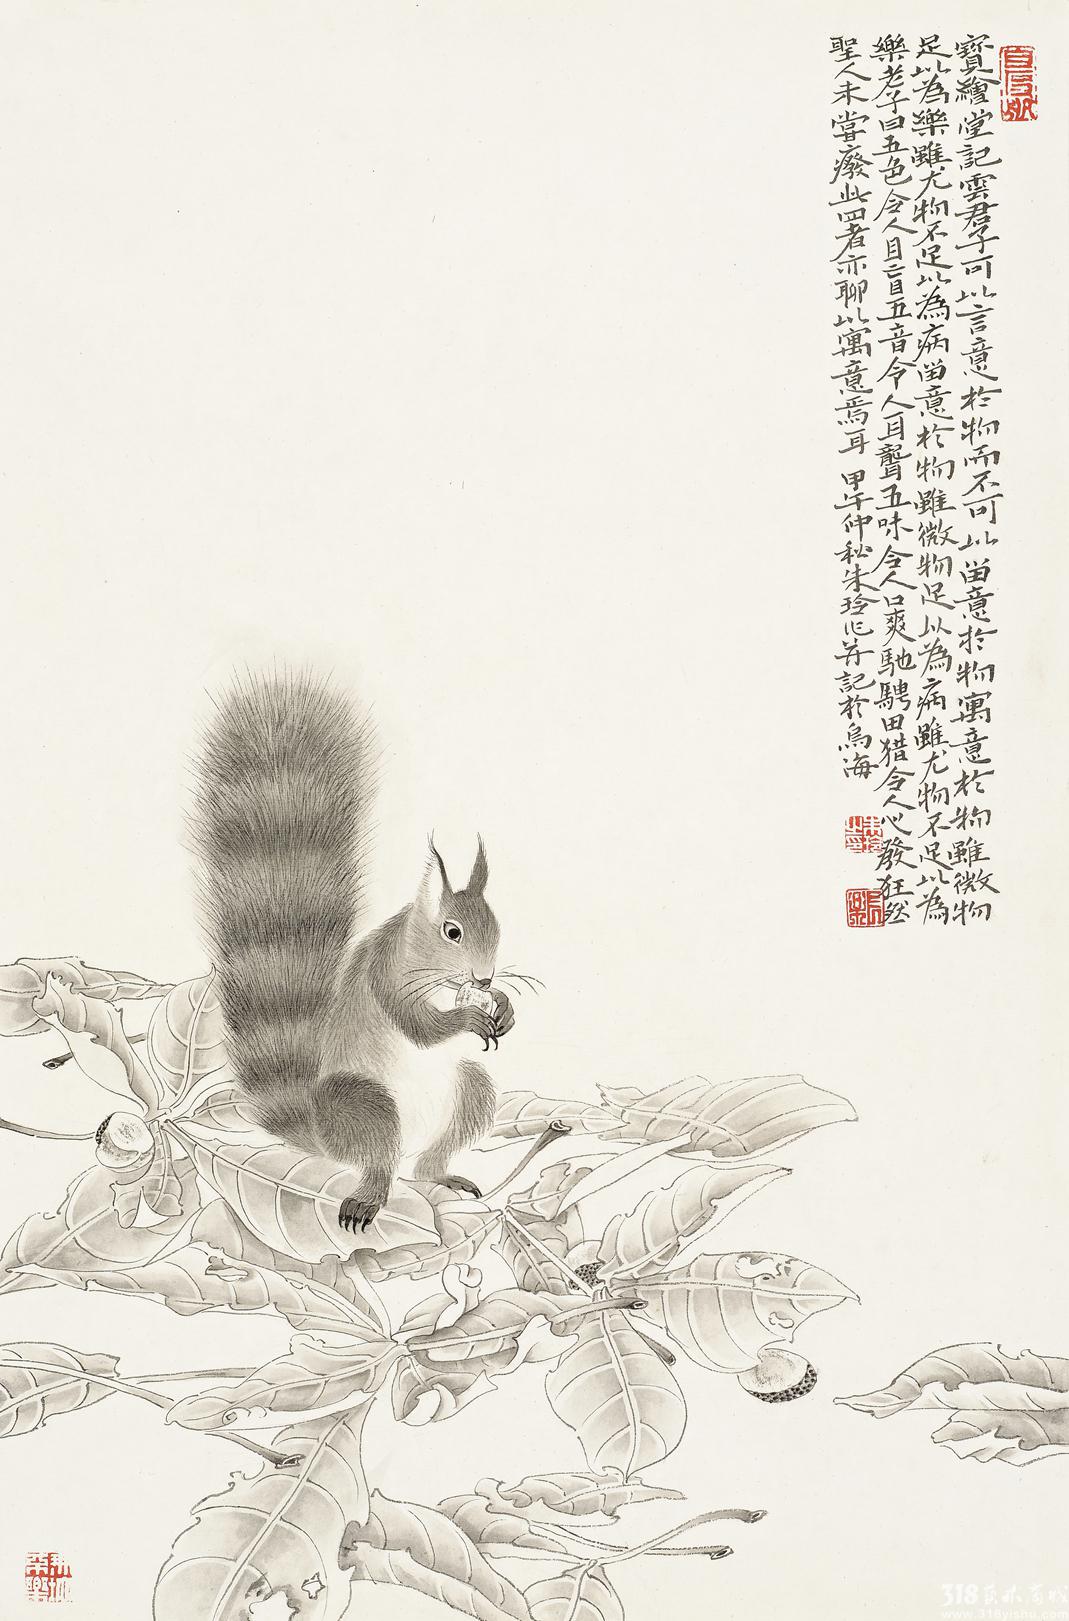 寶繪堂記雲君子可以言意於物而不可以留意於物寓意於物雖微物
足以為樂雖尤物不足以為病留意於物雖微物足以為病雖尤物不足以為
樂老子曰五色令人目盲五音令人耳聾五味令人口爽馳騁田猎令人心發狂然
聖人未嘗廢此四者亦聊以寓意焉耳 甲午仲秋朱玲作并記於烏海
318艺术商城
www.318yishu.com